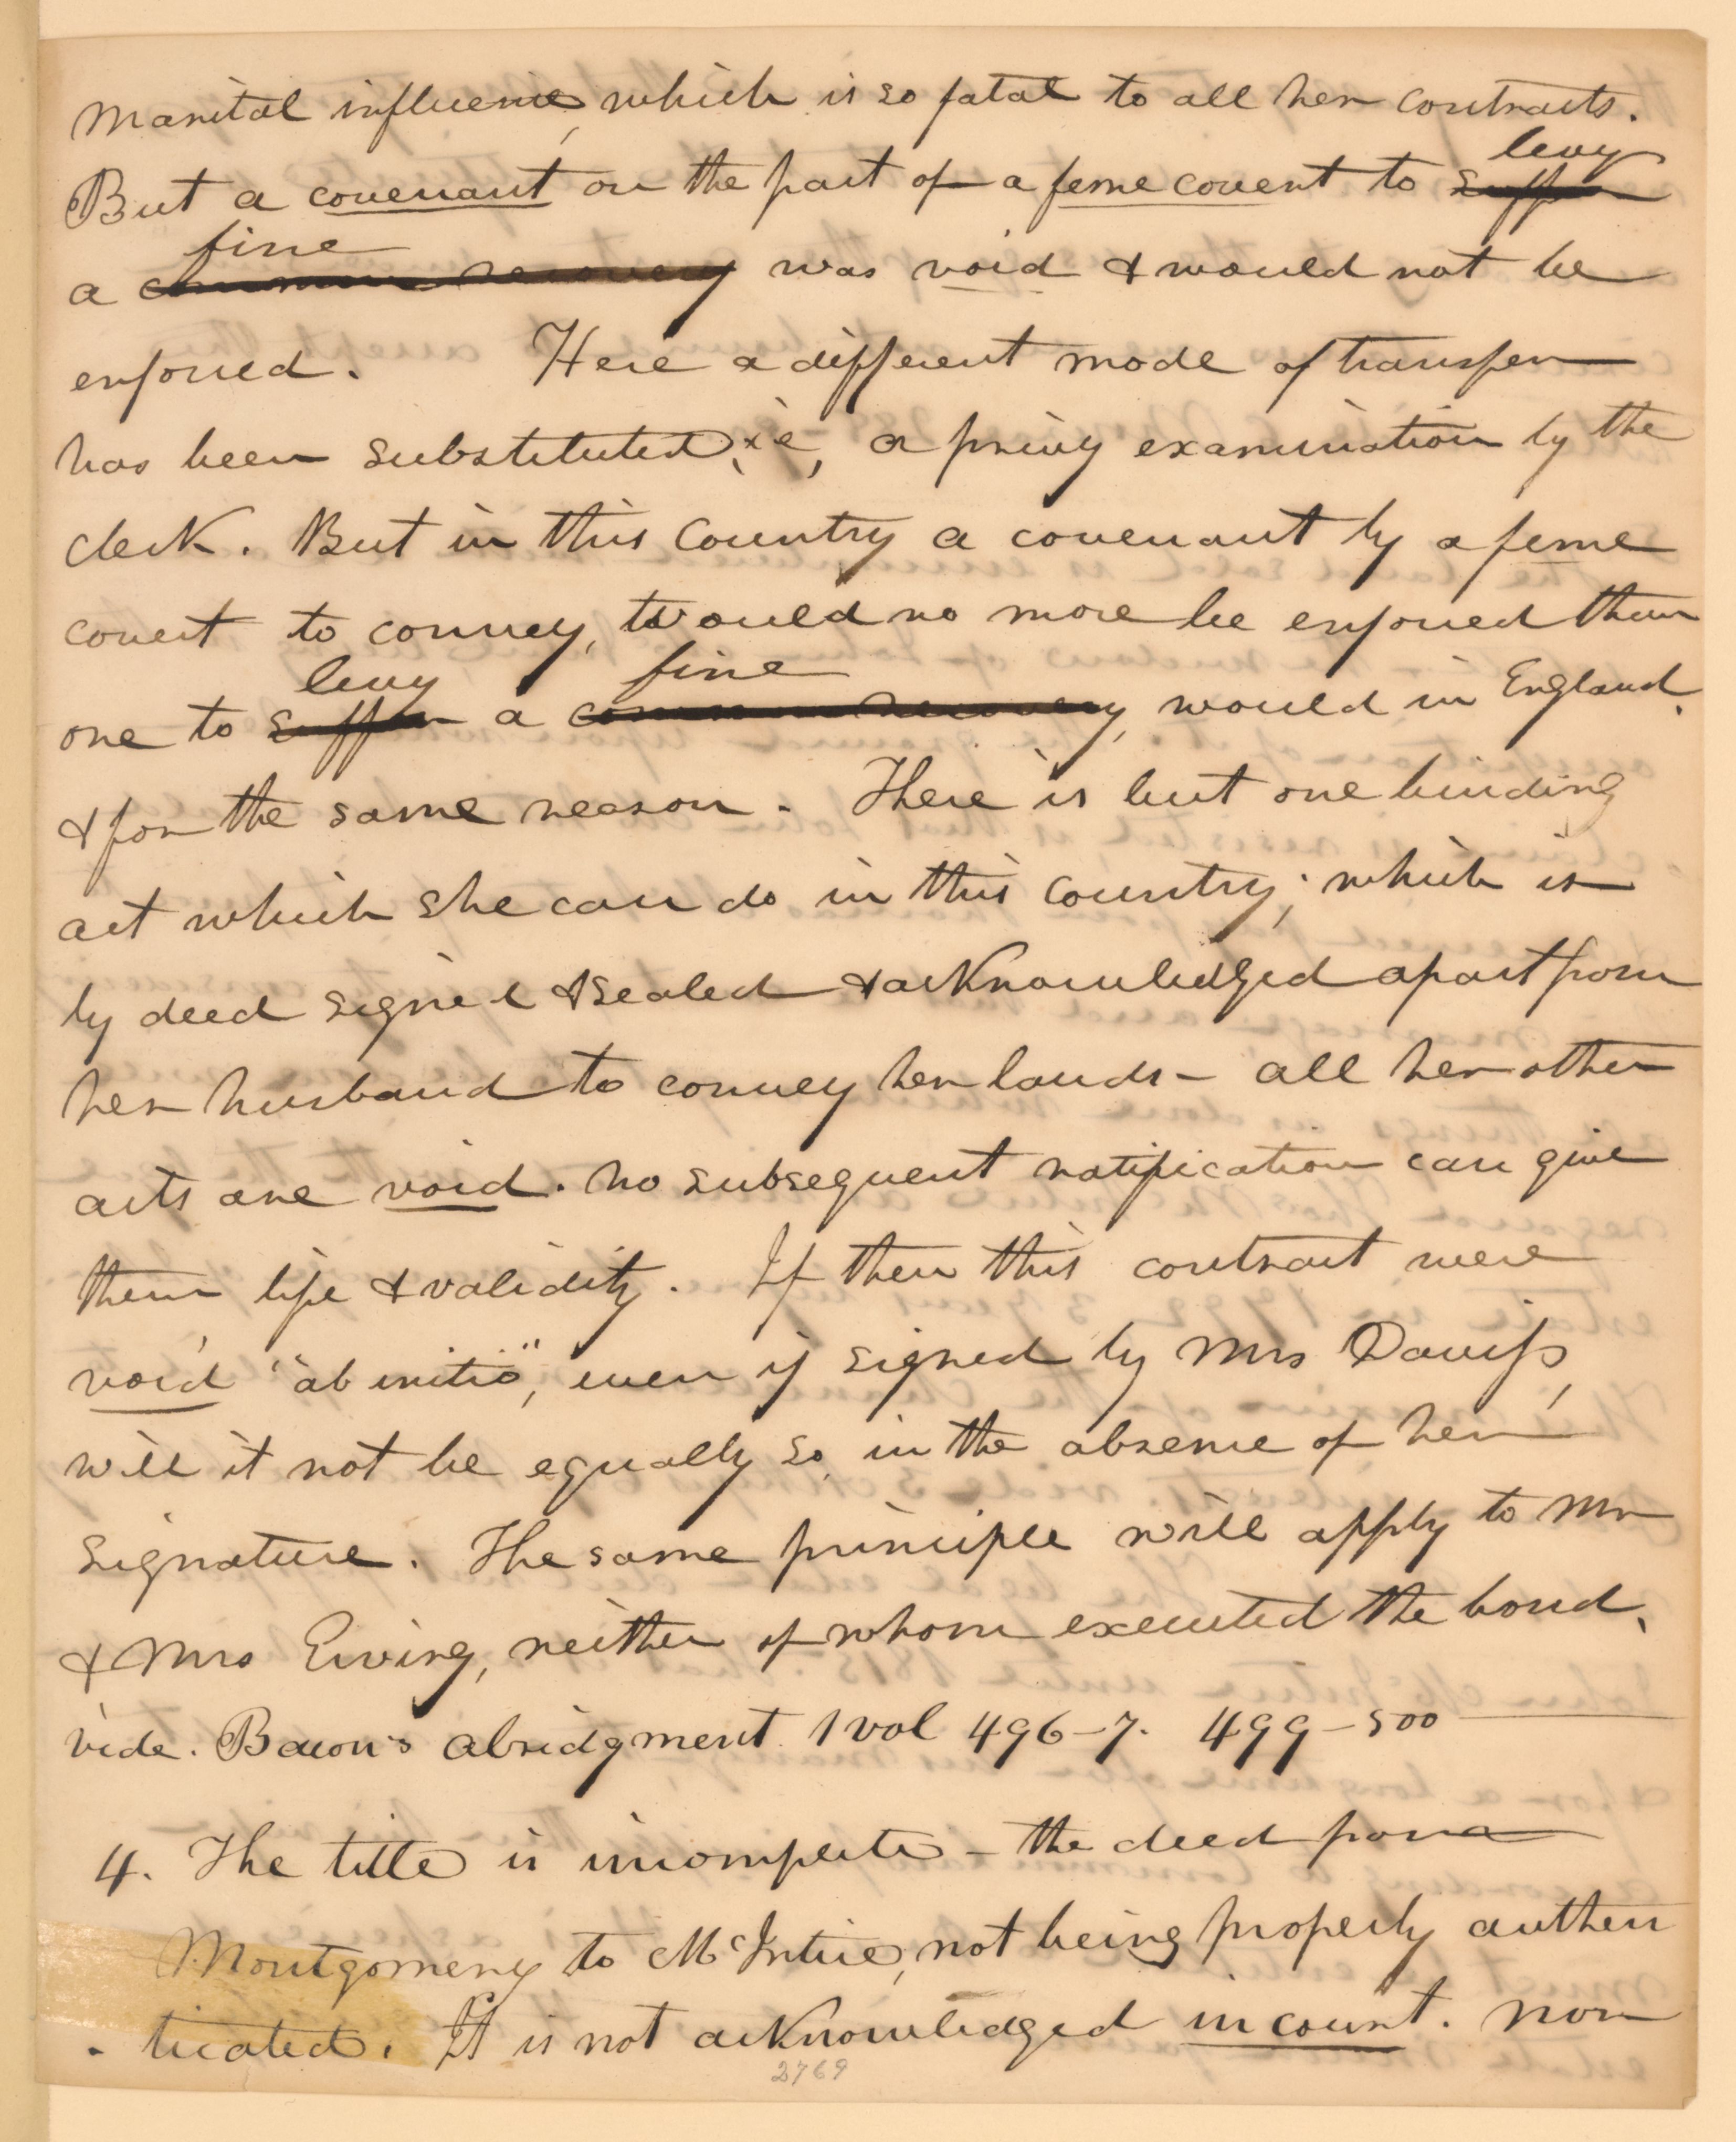 Marital influence, which is so fatal to all her contracts.
levy
But a covenant on the part of a feme covert to suffer
fine
a common recovery was void & would not be
enforced. Here a different mode of transfer
has been substituted, i.e, a privy examination by the
clerk. But in this Country a covenant by a feme
covert to convey, would no more be enforced than
levy fine
one to suffer a common recovery, would in England.
& for the same reason. There is but one binding
act which she can do in this Country; which is
by deed signed & sealed & acknowledged apart from
her husband to convey her lands - all her other
acts are void. No subsequent ratification can give
them life & validity. If then this contract were
void "ab initio", even if signed by Mrs Daviss,
will it not be equally so, in the absence of her
signature. The same principle will apply to Mr
& Mrs Ewing, neither of whom executed the bond.
vide. Bacon's abridgment. 1 vol 496-7. 499-500
4. The title is incomplete - the deed from
Montgomery to McIntire, not being properly authen
-ticated. It is not acknowledged in court. nor
2769